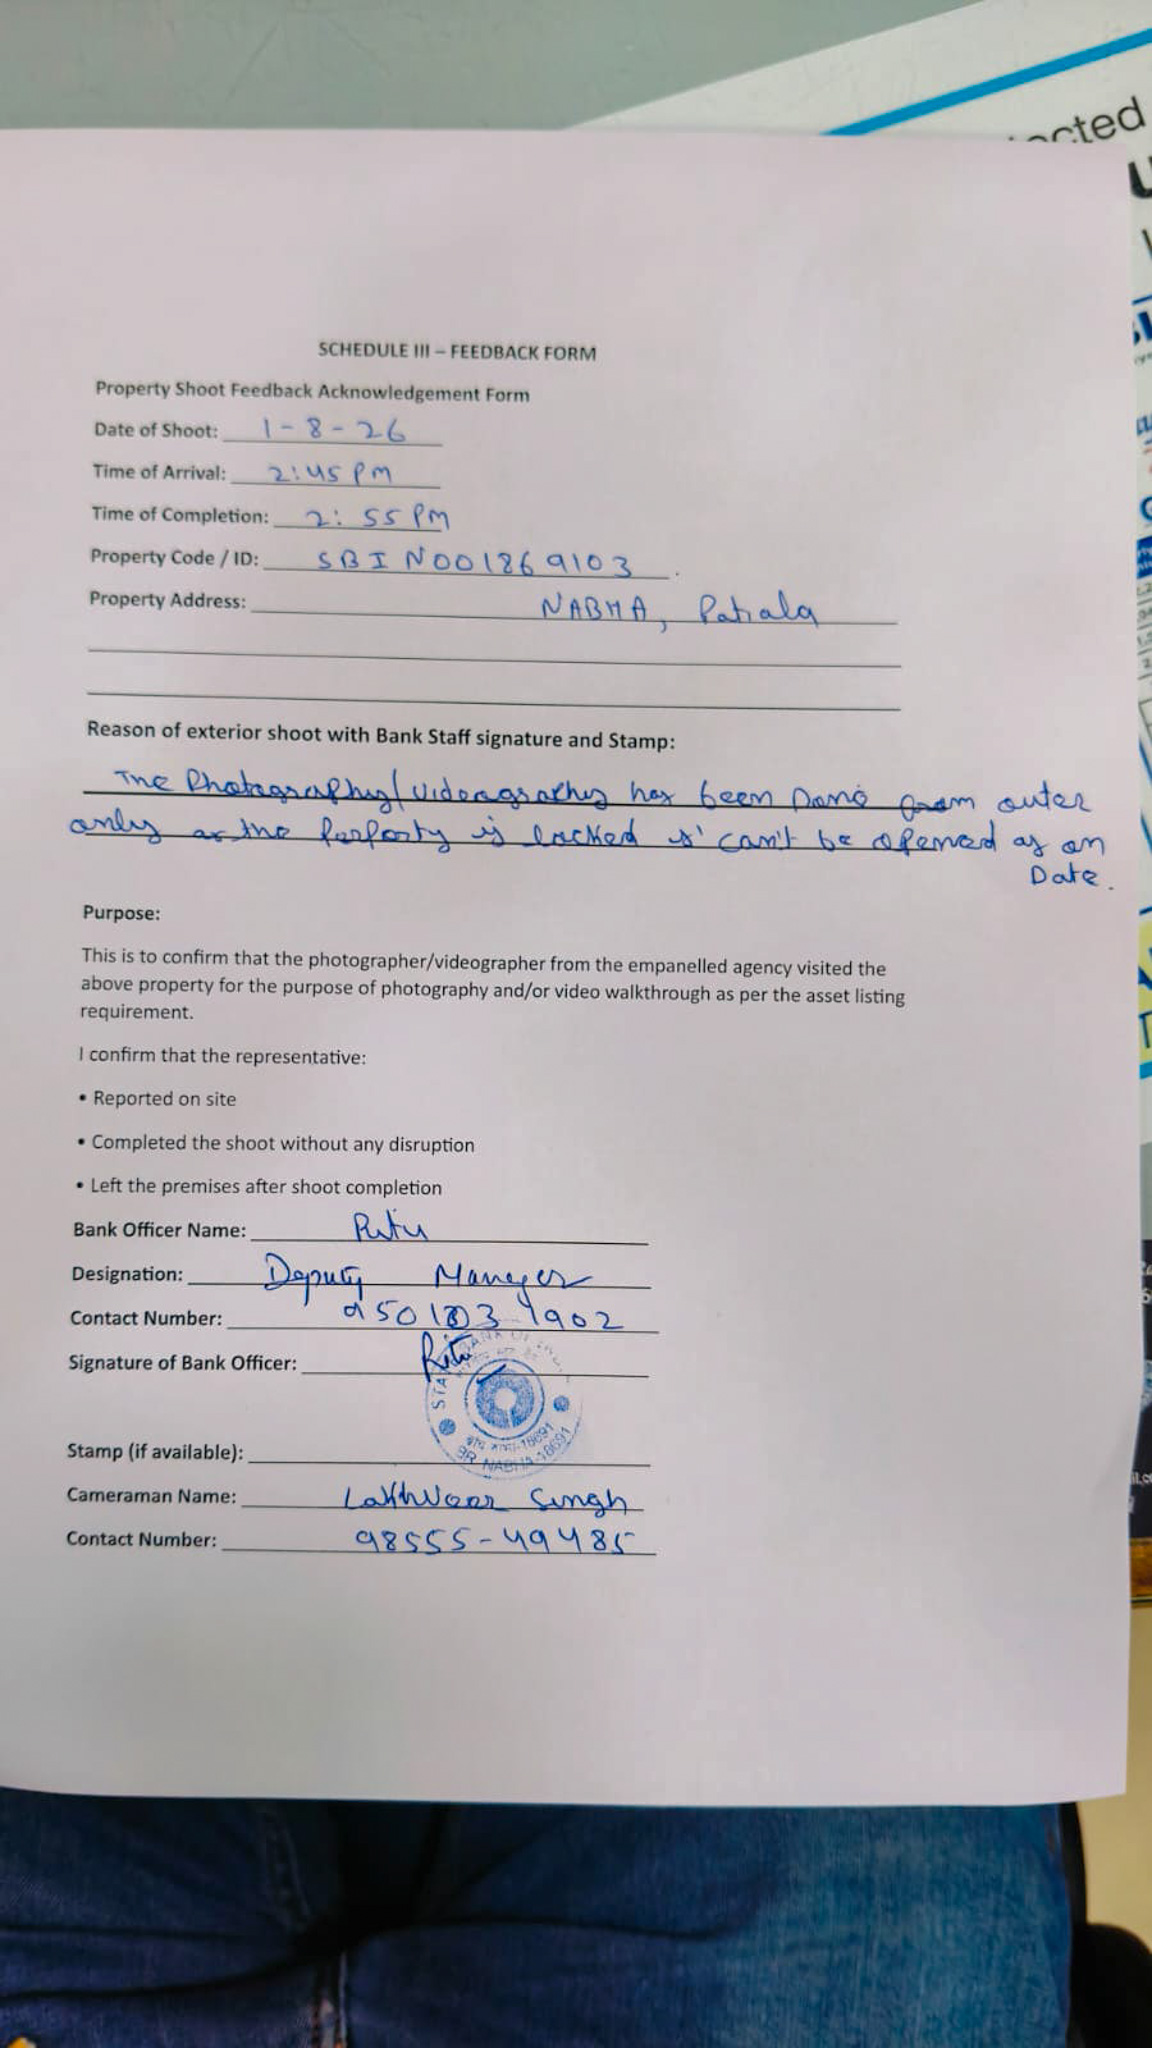 ected
SCHEDULE III – FEEDBACK FORM
Property Shoot Feedback Acknowledgement Form
Date of Shoot: 1-8-26
Time of Arrival: 2:45 PM
Time of Completion: 2:55 PM
Property Code / ID: SBIN001869103
Property Address: NABHA, Patiala
Reason of exterior shoot with Bank Staff signature and Stamp:
The Photography/Videography has been Done from outer
only as the Perporty is locked & can't be opened as on
Date.
Purpose:
This is to confirm that the photographer/videographer from the empanelled agency visited the
above property for the purpose of photography and/or video walkthrough as per the asset listing
requirement.
I confirm that the representative:
• Reported on site
• Completed the shoot without any disruption
• Left the premises after shoot completion
Bank Officer Name: Ritu
Designation: Deputy Manager
Contact Number:
Signature of Bank Officer: Ritu
BR. NABHA-18691
Stamp (if available):
Cameraman Name: Lakhveer Singh
Contact Number: 98555-49485